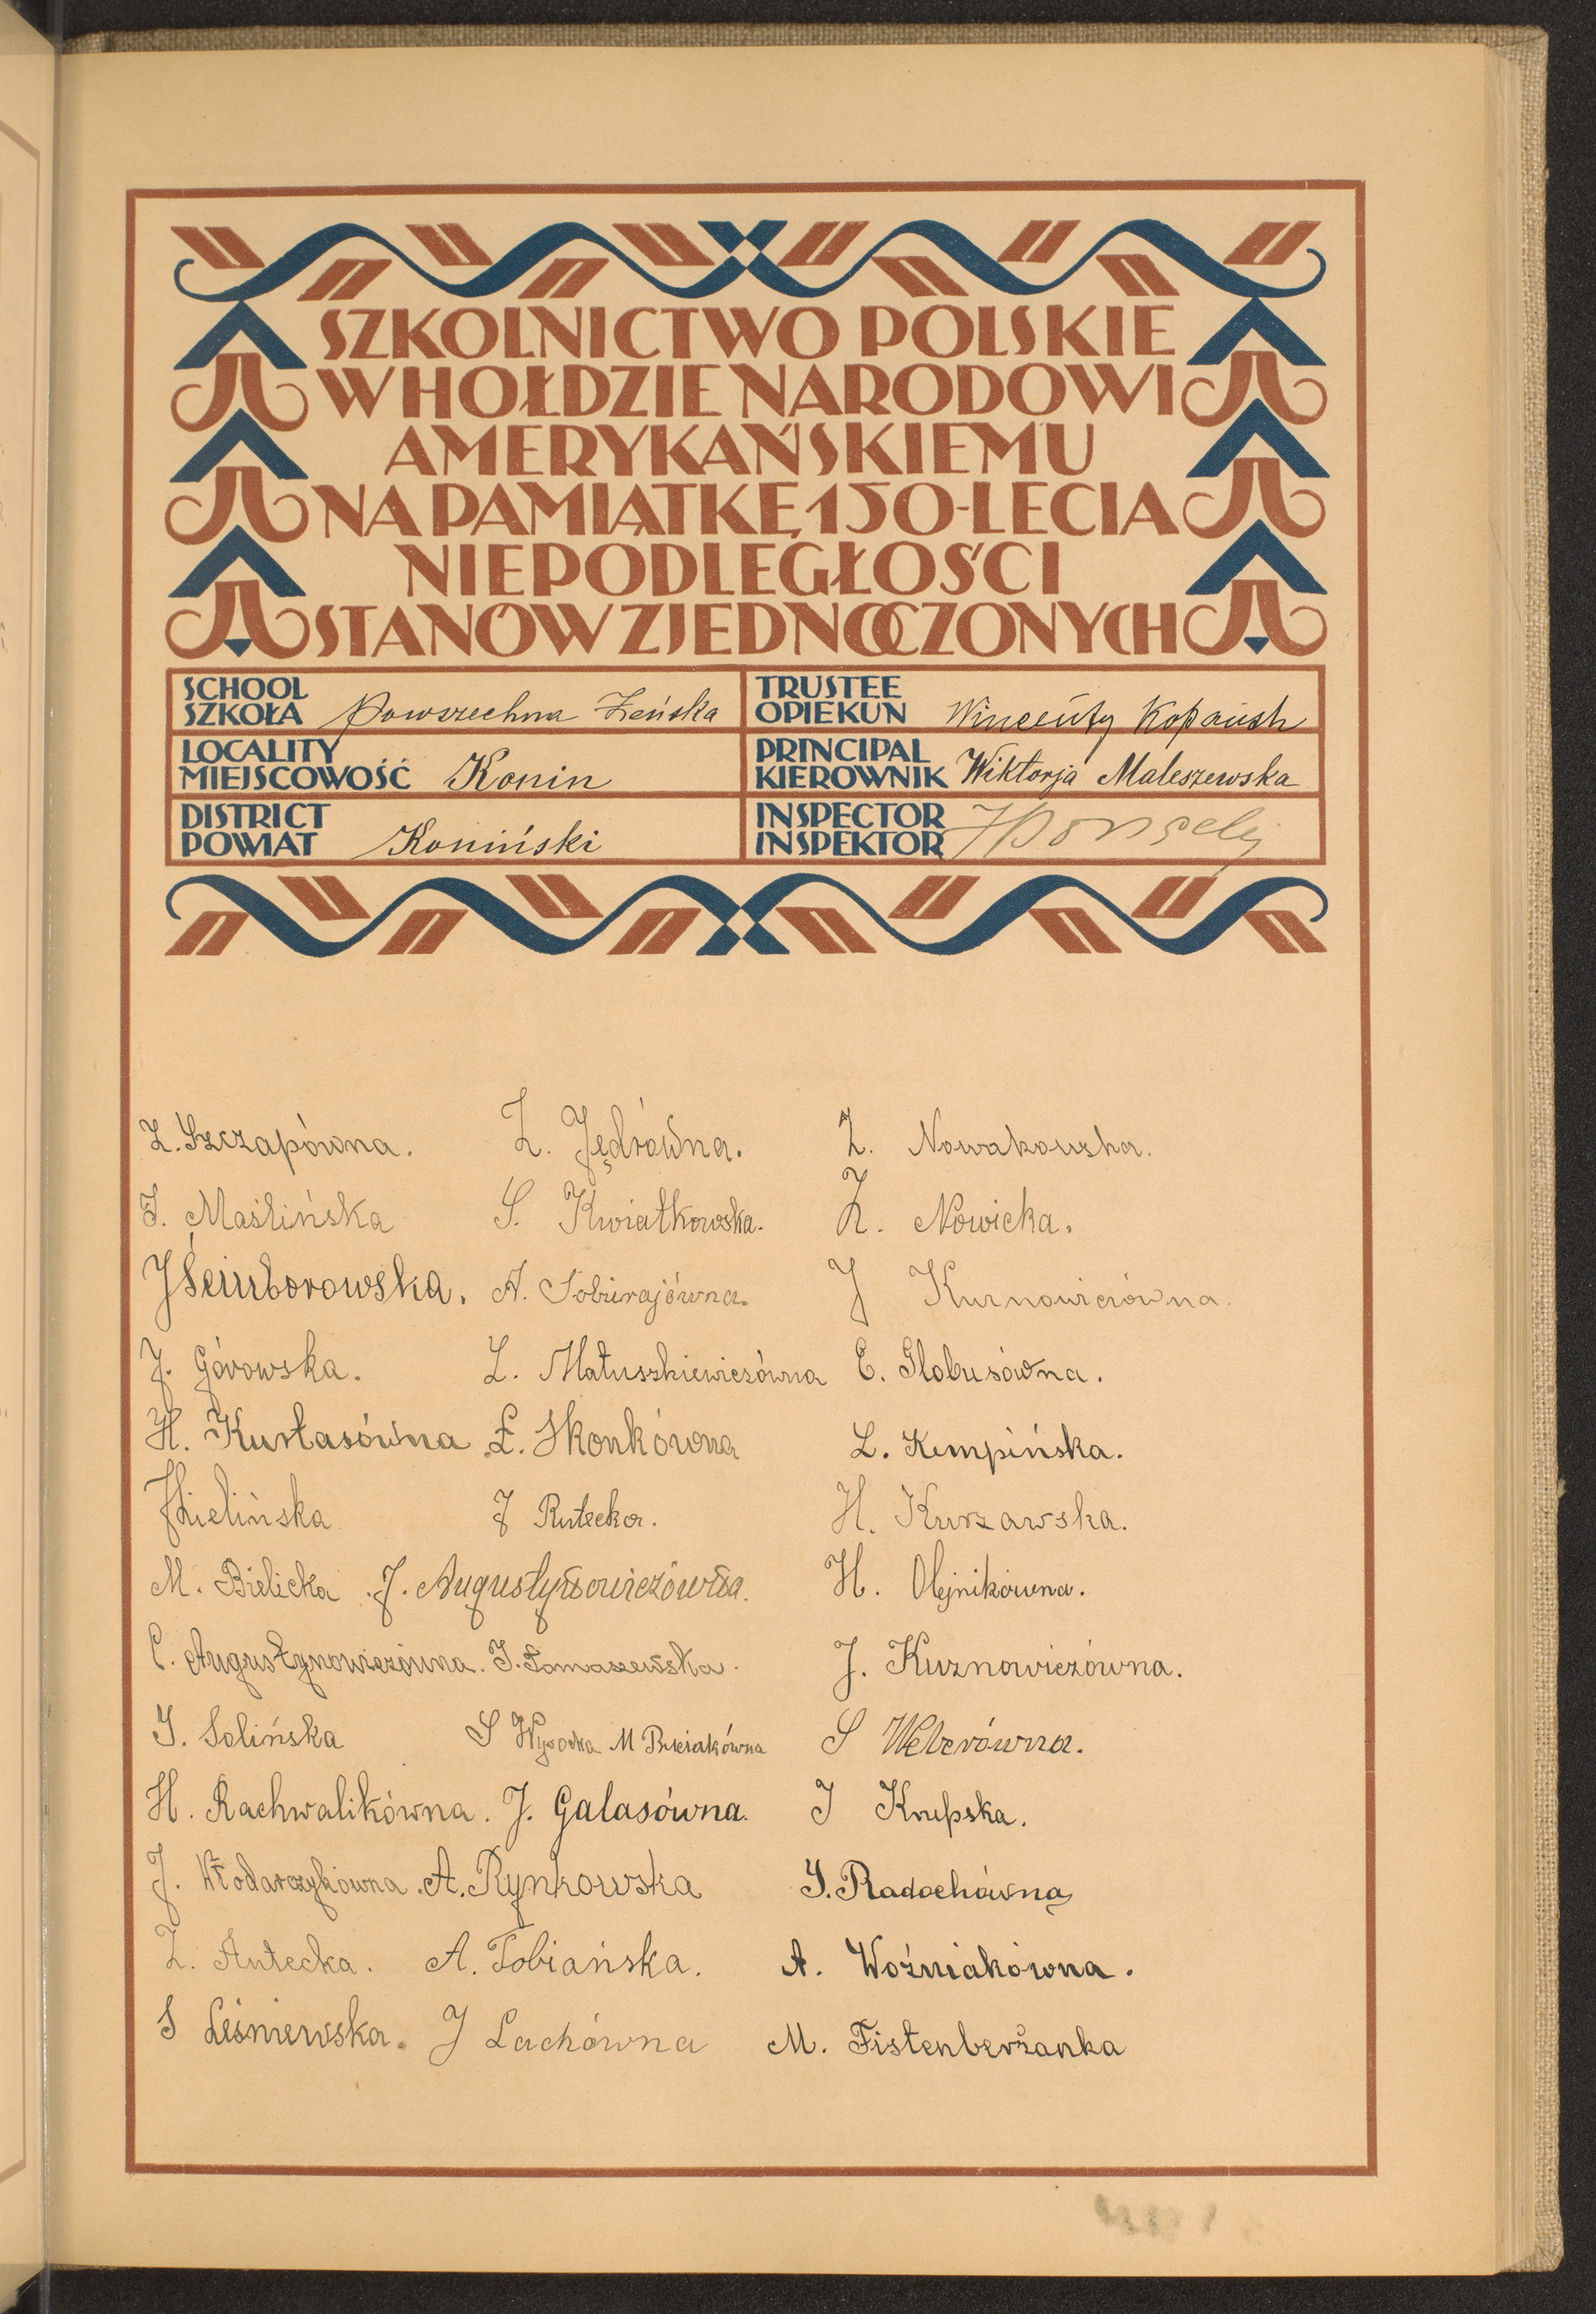 SZKOLNICTWO POLSKIE
W HOŁDZIE NARODOWI
AMERYKAŃSKIEMU
NA PAMIĄTKĘ 150-LECIA
NIEPODLEGŁOŚCI
STANÓW ZJEDNOCZONYCH
SCHOOL
SZKOŁA Powszechna Żeńska
TRUSTEE
OPIEKUN Wincenty
LOCALITY
MIEJSCOWOŚĆ Konin
PRINCIPAL
KIEROWNIK Wiktorja Maleszewska
DISTRICT
POWIAT Koniński
INSPECTOR
INSPEKTOR
Z. Szczapówna. Z. Jędrówna. Z. Nowakowska.
I. Maślińska S. Kwiatkowska. Z. Nowicka.
J Ściuborowska. A. Sobierajówna. J Kuznowiczówna.
J. Górowska. L. Matuszkiewiczówna E. Globusówna.
H. Kurłasówna Ł. Skonkówna L. Kempińska.
Zielińska J Rutecka. H. Kurzawska.
M. Bielicka J. Augustynowiczówna. H. Olejnikówna.
C. Augustynowiczówna. I. Tomaszewska. J. Kuznowiczówna.
I. Solińska S Wysocka M S Weberówna.
H. Rachwalikówna. J. Galasówna. I Krupska.
J. Włodarczykówna. A. Rynkowska I. Radochówna
Z. Antecka. A. Tobiańska. A. Woźniakówna.
S Leśniewska. J Lachówna M. Fistenberżanka